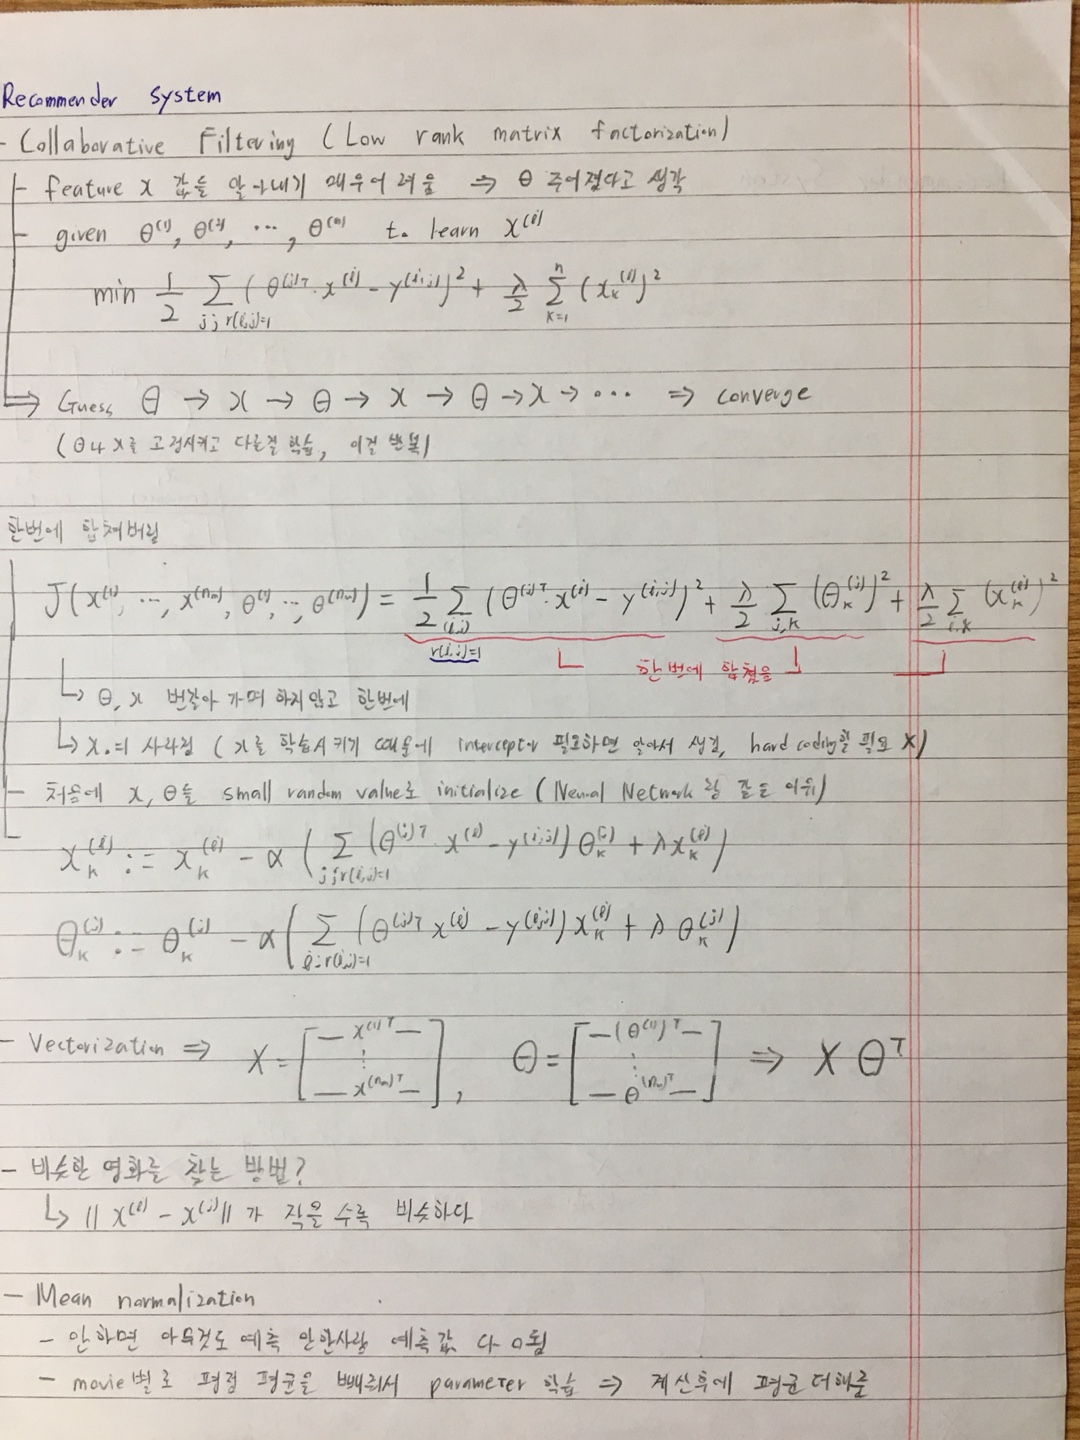 Recommender System
- Collaborative Filtering (Low rank matrix factorization)
- feature x 값을 알아내기 매우어려움 ⇒ θ 주어졌다고 생각
- given θ^(1), θ^(2), ⋯, θ^(n) to learn x^(i)
min 1/2 Σ_{j;r(i,j)=1} (θ^(j)T·x^(i) - y^(i,j))^2 + λ/2 Σ_{k=1}^{n} (x_k^(i))^2
⇒ Guess θ → x → θ → x → θ → x → ⋯ ⇒ converge
(θ나 x를 고정시키고 다른걸 학습, 이걸 반복)
한번에 합쳐버림
J(x^(1), ⋯, x^(n_m), θ^(1), ⋯, θ^(n_u)) = 1/2 Σ_{(i,j) r(i,j)=1} (θ^(j)T·x^(i) - y^(i,j))^2 + λ/2 Σ_{j,k} (θ_k^(j))^2 + λ/2 Σ_{i,k} (x_k^(i))^2
한번에 합쳤음
↳ θ, x 번갈아 가며 하지않고 한번에
↳ x₀=1 사라짐 (x를 학습시키기 때문에 interceptor 필요하면 알아서 생김, hard coding할 필요 X)
- 처음에 x, θ를 small random value로 initialize (Neural Network 랑 같은 이유)
x_k^(i) := x_k^(i) - α ( Σ_{j;r(i,j)=1} (θ^(j)T·x^(i) - y^(i,j)) θ_k^(j) + λx_k^(i) )
θ_k^(j) := θ_k^(j) - α ( Σ_{i:r(i,j)=1} (θ^(j)T x^(i) - y^(i,j)) x_k^(i) + λ θ_k^(j) )
- Vectorization ⇒ X = [— x^(1)T — ⋮ — x^(n_m)T —], Θ = [— (θ^(1))^T — ⋮ — θ^(n_u)T —] ⇒ X Θ^T
- 비슷한 영화를 찾는 방법?
↳ || x^(i) - x^(j) || 가 작을수록 비슷하다
- Mean normalization
- 안하면 아무것도 예측 안한사람 예측값 다 0됨
- movie별로 평점 평균을 빼줘서 parameter 학습 ⇒ 계산후에 평균 더해줌